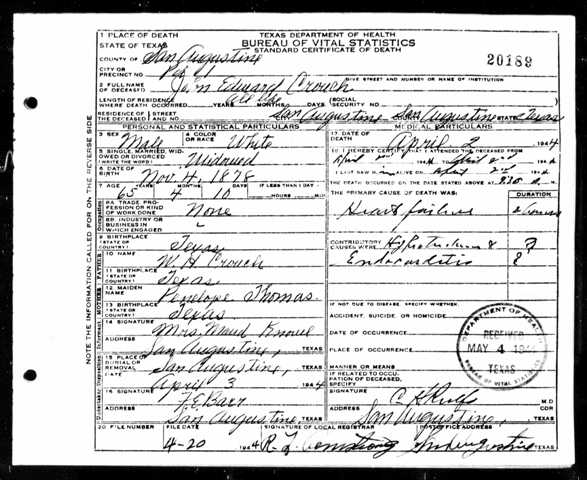 1 PLACE OF DEATH
STATE OF TEXAS
TEXAS DEPARTMENT OF HEALTH
BUREAU OF VITAL STATISTICS
STANDARD CERTIFICATE OF DEATH
COUNTY OF San Augustine
20189
CITY OR PRECINCT NO.
GIVE STREET AND NUMBER OR NAME OF INSTITUTION
2 FULL NAME OF DECEASED John Edward Crouch
LENGTH OF RESIDENCE WHERE DEATH OCCURRED YEARS MONTHS DAYS (SOCIAL SECURITY NO.
RESIDENCE OF THE DECEASED STREET AND NO. San Augustine San Augustine STATE Texas
PERSONAL AND STATISTICAL PARTICULARS
3 SEX Male 4 COLOR OR RACE White
5 SINGLE, MARRIED, WIDOWED OR DIVORCED (WRITE THE WORD) Widowed
6 DATE OF BIRTH Nov. 14, 1878
7 AGE YEARS MONTHS DAYS IF LESS THAN 1 DAY
65 4 HOURS MIN.
8A TRADE, PROFESSION OR KIND OF WORK DONE None
8B INDUSTRY OR BUSINESS IN WHICH ENGAGED "
9 BIRTHPLACE (STATE OR COUNTRY) Texas
10 NAME W. H. Crouch
11 BIRTHPLACE (STATE OR COUNTRY) Texas
12 MAIDEN NAME Penelope Thomas
13 BIRTHPLACE (STATE OR COUNTRY) Texas
14 SIGNATURE Mrs. Maud
ADDRESS San Augustine, TEXAS
15 PLACE OF BURIAL OR REMOVAL San Augustine, TEXAS
DATE April 3 1944
16 SIGNATURE
ADDRESS San Augustine TEXAS
MEDICAL PARTICULARS
17 DATE OF DEATH April 2 1944
18 I HEREBY CERTIFY THAT I ATTENDED THE DECEASED FROM
April 2nd 1944
I LAST SAW H ALIVE ON April 2nd 1944
THE DEATH OCCURRED ON THE DATE STATED ABOVE AT M.
THE PRIMARY CAUSE OF DEATH WAS: DURATION
Heart failure
CONTRIBUTORY CAUSES WERE ?
Endocarditis ?
IF NOT DUE TO DISEASE, SPECIFY WHETHER:
ACCIDENT, SUICIDE, OR HOMICIDE
DATE OF OCCURRENCE
PLACE OF OCCURRENCE
MANNER OR MEANS
IF RELATED TO OCCUPATION OF DECEASED, SPECIFY
SIGNATURE M D
ADDRESS San Augustine, TEXAS
DEPARTMENT OF HEALTH
RECEIVED
MAY 4
TEXAS
BUREAU OF VITAL STATISTICS
20 FILE NUMBER FILE DATE SIGNATURE OF LOCAL REGISTRAR POSTOFFICE ADDRESS
4-20 1944 San Augustine TEXAS
NOTE THE INFORMATION CALLED FOR ON THE REVERSE SIDE